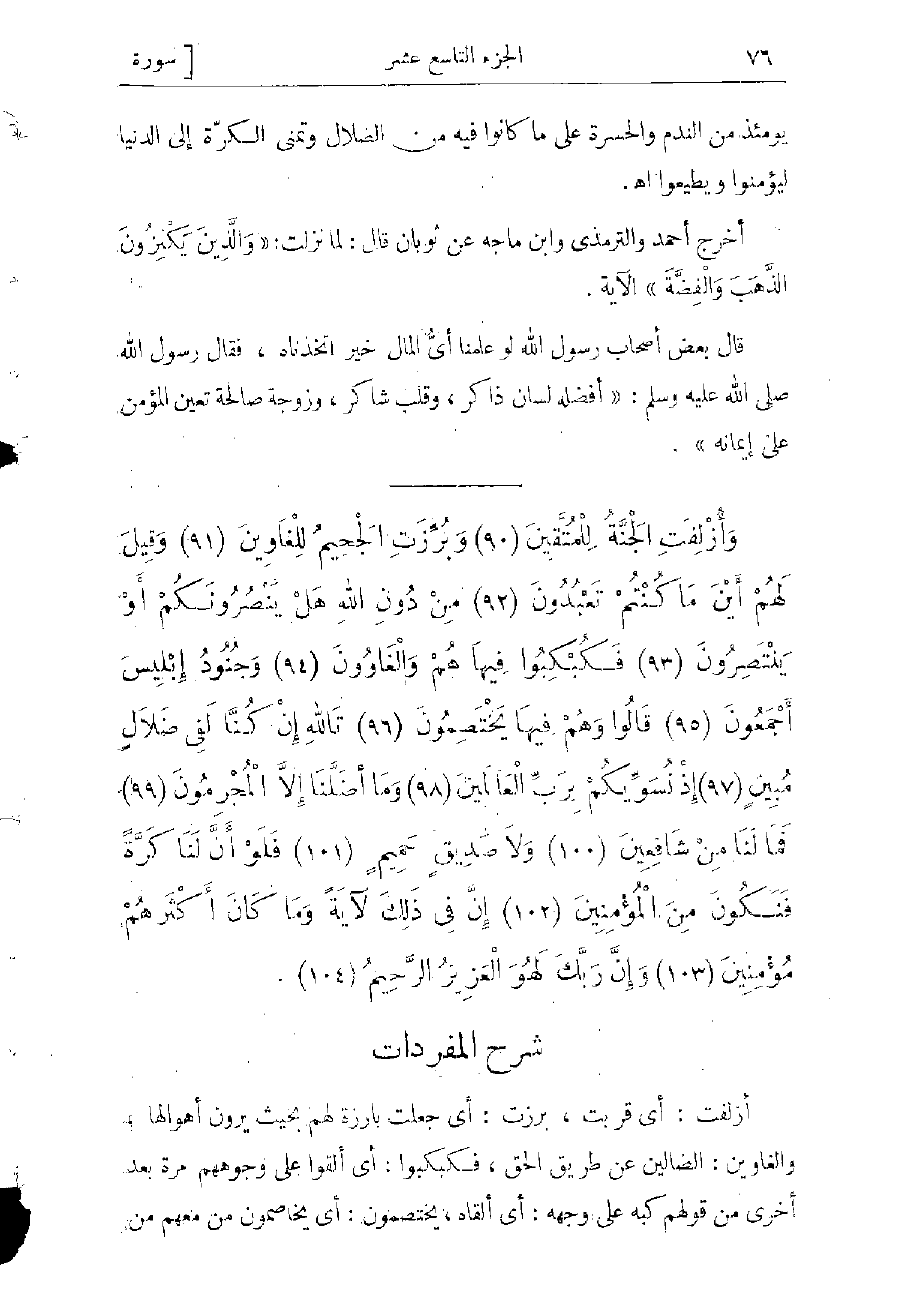 ٧٦ الجزء التاسع عشر [ سورة
يومئذ من الندم والحسرة على ما كانوا فيه من الضلال وتمنى الكرّة إلى الدنيا
ليؤمنوا ويطيعوا اه.
أخرج أحمد والترمذى وابن ماجه عن ثوبان قال : لما نزلت : « وَالَّذِينَ يَكْنِزُونَ
الذَّهَبَ وَالْفِضَّةَ » الآية .
قال بعض أصحاب رسول الله لو علمنا أىُّ المال خير اتخذناه ، فقال رسول الله
صلى الله عليه وسلم : « أفضله لسان ذاكر ، وقلب شاكر ، وزوجة صالحة تعين المؤمن
على إيمانه » .
وَأُزْلِفَتِ الْجَنَّةُ لِلْمُتَّقِينَ (٩٠) وَبُرِّزَتِ الْجَحِيمُ لِلْغَاوِينَ (٩١) وَقِيلَ
لَهُمْ أَيْنَ مَا كُنْتُمْ تَعْبُدُونَ (٩٢) مِنْ دُونِ اللهِ هَلْ يَنْصُرُونَكُمْ أَوْ
يَنْتَصِرُونَ (٩٣) فَكُبْكِبُوا فِيهَا هُمْ وَالْغَاوُونَ (٩٤) وَجُنُودُ إِبْلِيسَ
أَجْمَعُونَ (٩٥) قَالُوا وَهُمْ فِيهَا يَخْتَصِمُونَ (٩٦) تَاللهِ إِنْ كُنَّا لَفِى ضَلَالٍ
مُبِينٍ (٩٧) إِذْ نُسَوِّيكُمْ بِرَبِّ الْعَالَمِينَ (٩٨) وَمَا أَضَلَّنَا إِلاَّ الْمُجْرِمُونَ (٩٩)
فَمَا لَنَا مِنْ شَافِعِينَ (١٠٠) وَلاَ صَدِيقٍ حَمِيمٍ (١٠١) فَلَوْ أَنَّ لَنَا كَرَّةً
فَنَكُونَ مِنَ الْمُؤْمِنِينَ (١٠٢) إِنَّ فِى ذَلِكَ لَآيَةً وَمَا كَانَ أَكْثَرُهُمْ
مُؤْمِنِينَ (١٠٣) وَإِنَّ رَبَّكَ لَهُوَ الْعَزِيزُ الرَّحِيمُ (١٠٤) .
شرح المفردات
أزلفت : أى قربت ، برزت : أى جعلت بارزة لهم بحيث يرون أهوالها ،
والغاوين : الضالين عن طريق الحق ، فكبكبوا : أى ألقوا على وجوههم مرة بعد
أخرى من قولهم كبه على وجهه : أى ألقاه ، يختصمون : أى يخاصمون من معهم من